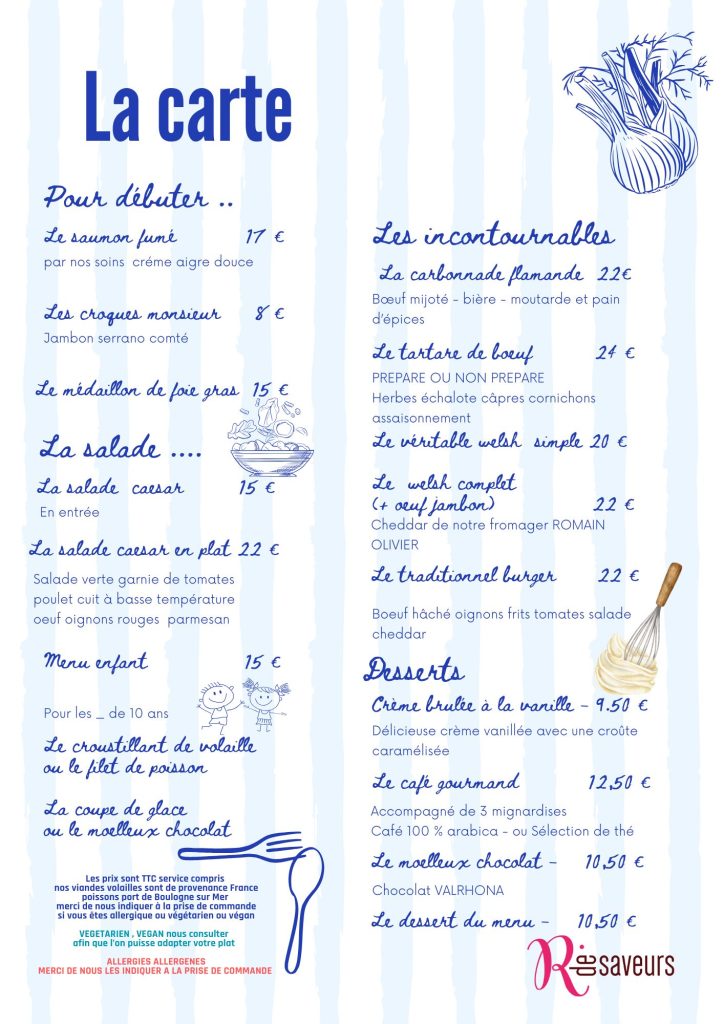 La carte
Pour débuter ..
Le saumon fumé 17 €
par nos soins créme aigre douce
Les croques monsieur 8 €
Jambon serrano comté
Le médaillon de foie gras 15 €
La salade ....
La salade caesar 15 €
En entrée
La salade caesar en plat 22 €
Salade verte garnie de tomates
poulet cuit à basse température
oeuf oignons rouges parmesan
Menu enfant 15 €
Pour les _ de 10 ans
Le croustillant de volaille
ou le filet de poisson
La coupe de glace
ou le moelleux chocolat
Les prix sont TTC service compris
nos viandes volailles sont de provenance France
poissons port de Boulogne sur Mer
merci de nous indiquer à la prise de commande
si vous êtes allergique ou végétarien ou végan
VEGETARIEN , VEGAN nous consulter
afin que l'on puisse adapter votre plat
ALLERGIES ALLERGENES
MERCI DE NOUS LES INDIQUER A LA PRISE DE COMMANDE
Les incontournables
La carbonnade flamande 22€
Bœuf mijoté - bière - moutarde et pain
d'épices
Le tartare de boeuf 24 €
PREPARE OU NON PREPARE
Herbes échalote câpres cornichons
assaisonnement
Le véritable welsh simple 20 €
Le welsh complet
(+ oeuf jambon) 22 €
Cheddar de notre fromager ROMAIN
OLIVIER
Le traditionnel burger 22 €
Boeuf hâché oignons frits tomates salade
cheddar
Desserts
Crème brulée à la vanille - 9.50 €
Délicieuse crème vanillée avec une croûte
caramélisée
Le café gourmand 12,50 €
Accompagné de 3 mignardises
Café 100 % arabica - ou Sélection de thé
Le moelleux chocolat - 10,50 €
Chocolat VALRHONA
Le dessert du menu - 10,50 €
R des saveurs